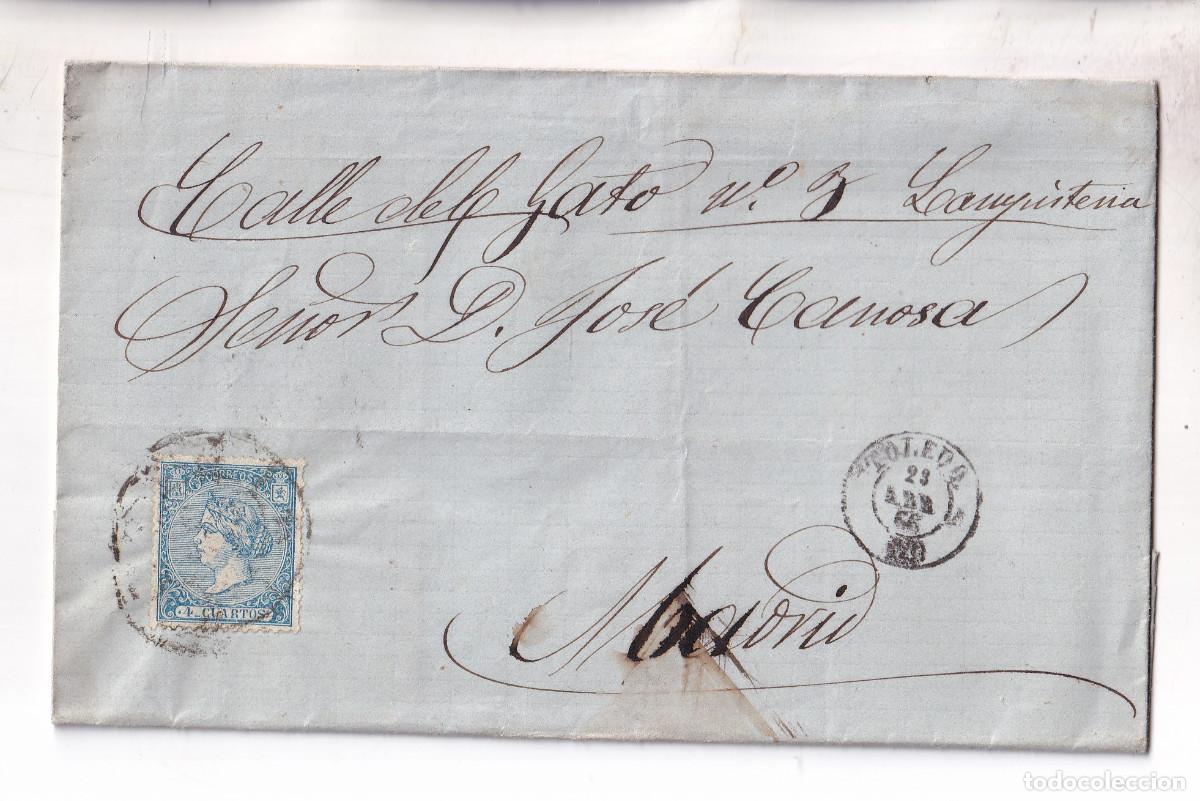 Calle del Gato nº. 3 Lampisteria
Señor D. José Canosa
CORREOS
4 CUARTOS
TOLEDO
23
ABR
66
Madrid
todocoleccion